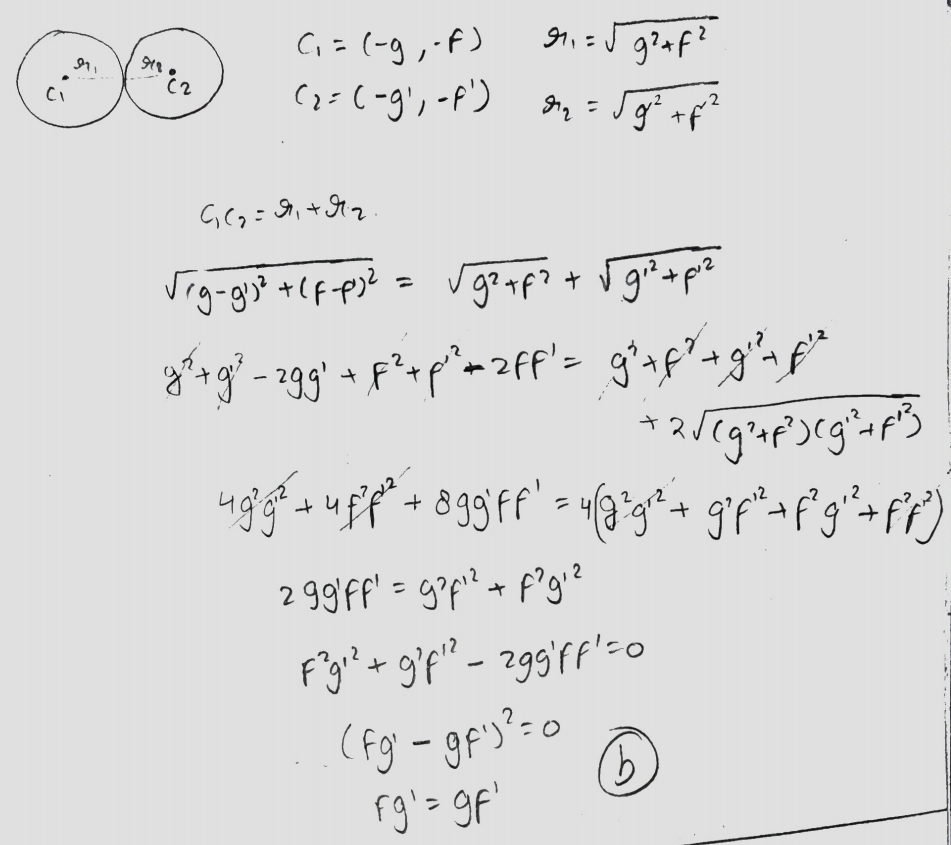 C₁ r₁ r₂ C₂
C₁ = (-g, -f) r₁ = √(g²+f²)
C₂ = (-g', -f') r₂ = √(g'²+f'²)
C₁C₂ = r₁ + r₂.
√((g-g')² + (f-f')²) = √(g²+f²) + √(g'²+f'²)
g² + g'² - 2gg' + f² + f'² - 2ff' = g² + f² + g'² + f'²
+ 2√((g²+f²)(g'²+f'²))
4g²g'² + 4f²f'² + 8gg'ff' = 4(g²g'² + g²f'² + f²g'² + f²f'²)
2gg'ff' = g²f'² + f²g'²
f²g'² + g²f'² - 2gg'ff' = 0
(fg' - gf')² = 0
b
fg' = gf'